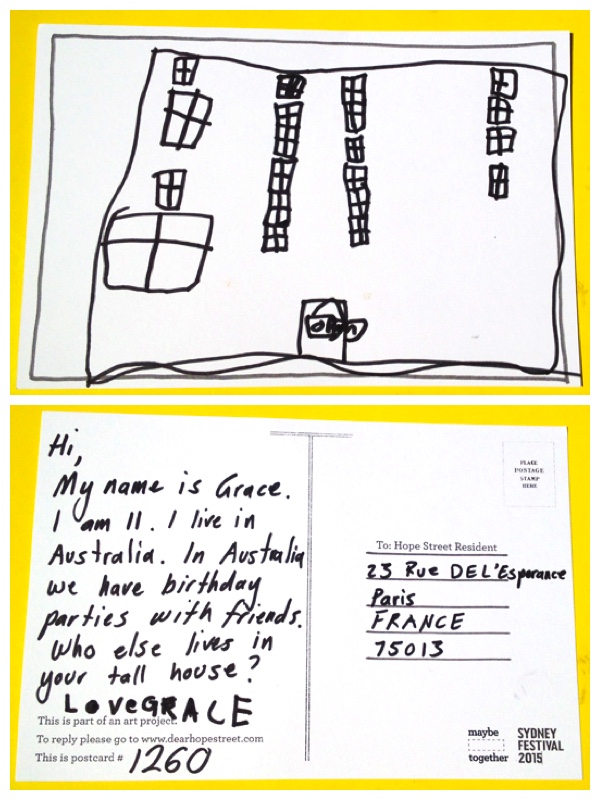 open
Hi,
My name is Grace.
I am 11. I live in
Australia. In Australia
we have birthday
parties with friends.
Who else lives in
your tall house?
LoveGRACE
This is part of an art project.
To reply please go to www.dearhopestreet.com
This is postcard # 1260
PLACE
POSTAGE
STAMP
HERE
To: Hope Street Resident
23 Rue DEL'Esperance
Paris
FRANCE
75013
maybe
together
SYDNEY
FESTIVAL
2015